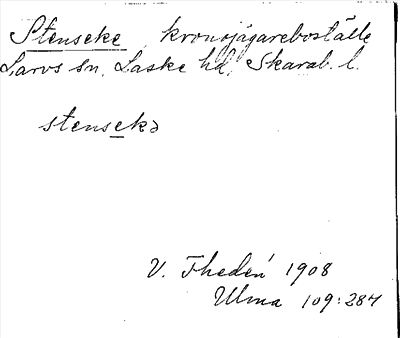 Stenseke, kronojägareboställe
Larvs sn, Laske hd, Skarab. l.
stensekə
V. Thedén 1908
Ulma 109:284